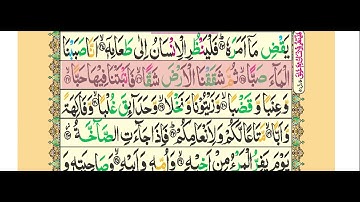 يَقْضِ مَآ اَمَرَهٗ ۞ فَلْيَنْظُرِ الْاِنْسَانُ اِلٰى طَعَامِهٖٓ ۞ اَنَّا صَبَبْنَا
الْمَآءَ صَبًّا ۞ ثُمَّ شَقَقْنَا الْاَرْضَ شَقًّا ۞ فَاَنْۢبَتْنَا فِيْهَا حَبًّا ۞
وَّ عِنَبًا وَّ قَضْبًا ۞ وَّ زَيْتُوْنًا وَّ نَخْلًا ۞ وَّ حَدَآئِقَ غُلْبًا ۞ وَّ فَاكِهَةً
وَّ اَبًّا ۞ مَّتَاعًا لَّكُمْ وَ لِاَنْعَامِكُمْ ۞ فَاِذَا جَآءَتِ الصَّآخَّةُ ۞
يَوْمَ يَفِرُّ الْمَرْءُ مِنْ اَخِيْهِ ۞ وَ اُمِّهٖ وَ اَبِيْهِ ۞ وَ صَاحِبَتِهٖ وَ